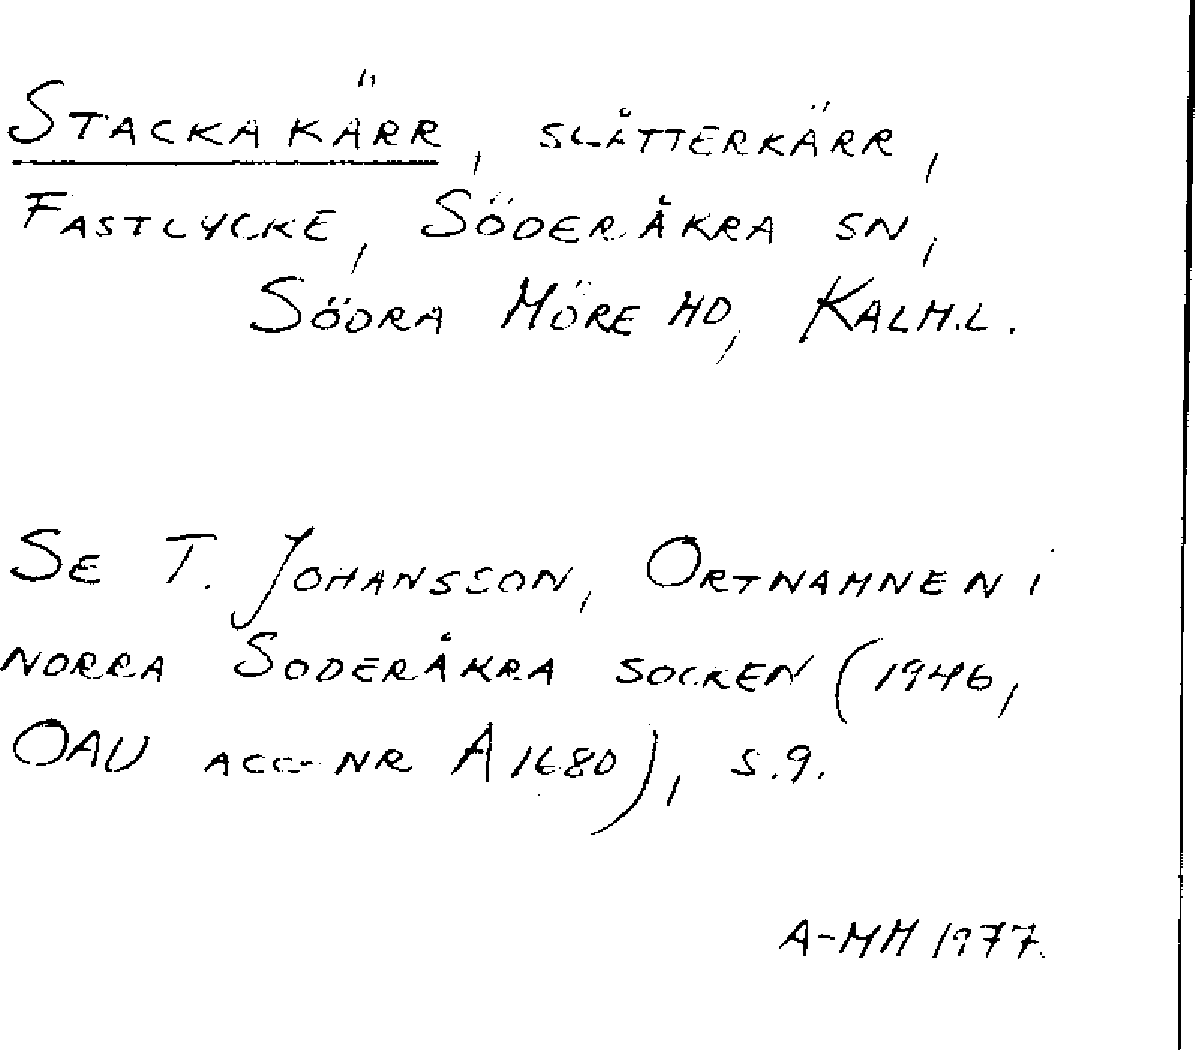 STACKAKÄRR, SLÅTTERKÄRR,
FASTLYCKE, SÖDERÅKRA SN,
SÖDRA MÖRE HD, KALM.L.
SE T. JOHANSSON, ORTNAMNEN I
NORRA SÖDERÅKRA SOCKEN (1946,
OAU ACC-NR A1680), S.9.
A-MH 1977.